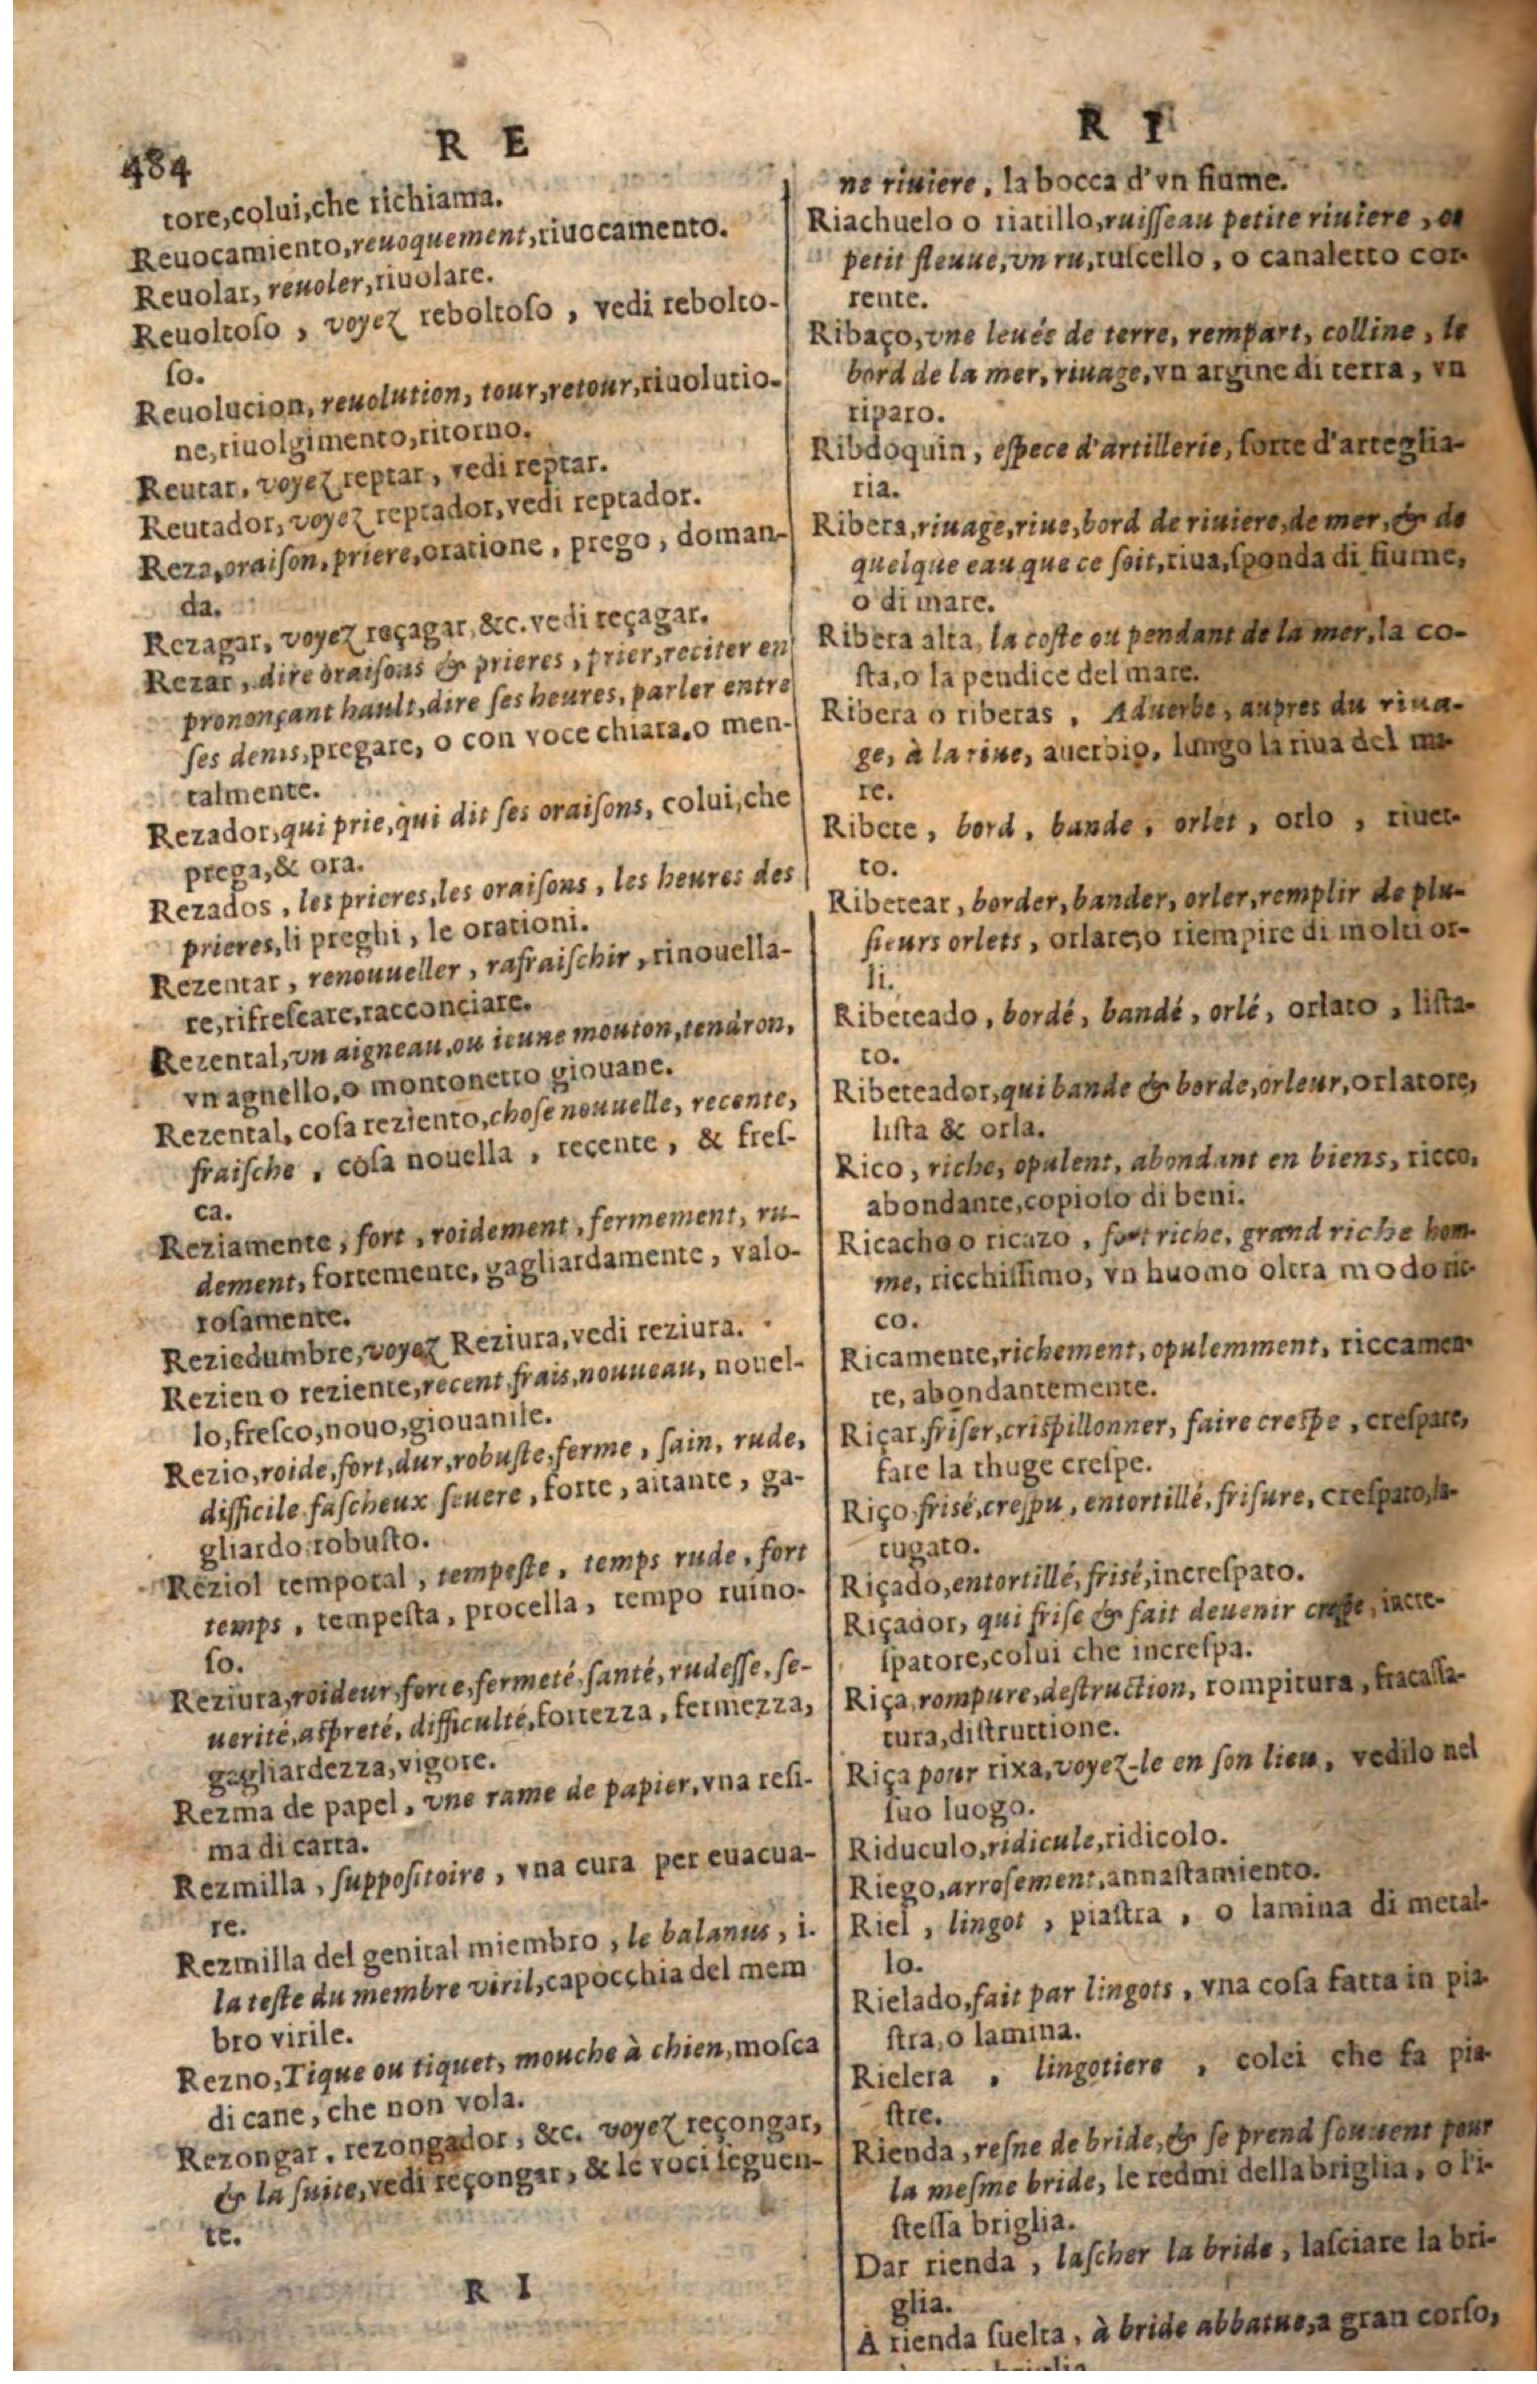 484
R E
tore,colui,che richiama.
Reuocamiento,reuoquement,riuocamento.
Reuolar, reuoler,riuolare.
Reuoltoſo , voyez reboltoſo , vedi rebolto-
ſo.
Reuolucion, reuolution, tour,retour,riuolutio-
ne,riuolgimento,ritorno.
Reutar, voyez reptar, vedi reptar.
Reutador, voyez reptador,vedi reptador.
Reza,oraiſon,priere,oratione, prego, doman-
da.
Rezagar, voyez reçagar,&c.vedi reçagar.
Rezar, dire oraiſons & prieres, prier,reciter en
prononçant hault,dire ſes heures, parler entre
ſes dents,pregare, o con voce chiara,o men-
talmente.
Rezador,qui prie,qui dit ſes oraiſons, colui,che
prega,& ora.
Rezados , les prieres,les oraiſons, les heures des
prieres,li preghi, le orationi.
Rezentar, renouueller, rafraiſchir,rinouella-
re,rifreſcare,racconciare.
Rezental,vn aigneau,ou ieune mouton,tendron,
vn agnello,o montonetto giouane.
Rezental, coſa reziento,choſe nouuelle, recente,
fraiſche , coſa nouella , recente , & freſ-
ca.
Reziamente, fort , roidement , fermement, ru-
dement, fortemente, gagliardamente, valo-
roſamente.
Reziedumbre,voyez Reziura,vedi reziura.
Rezien o reziente,recent,frais,nouueau, nouel-
lo,freſco,nouo,giouanile.
Rezio,roide,fort,dur,robuſte,ferme, ſain, rude,
difficile,faſcheux ſeuere, forte, aitante, ga-
gliardo,robuſto.
Reziol temporal, tempeſte, temps rude, fort
temps , tempeſta, procella, tempo ruino-
ſo.
Reziura,roideur,force,fermeté,ſanté,rudeſſe, ſe-
uerité,aſpreté, difficulté,fortezza, fermezza,
gagliardezza,vigore.
Rezma de papel, vne rame de papier,vna reſi-
ma di carta.
Rezmilla , ſuppoſitoire , vna cura per euacua-
re.
Rezmilla del genital miembro, le balanus, i.
la teſte du membre viril,capocchia del mem
bro virile.
Rezno,Tique ou tiquet, mouche à chien,moſca
di cane, che non vola.
Rezongar, rezongador, &c. voyez reçongar,
& la ſuite,vedi reçongar, & le voci ſeguen-
te.
R I
R I
ne riuiere, la bocca d'vn fiume.
Riachuelo o riatillo,ruiſſeau petite riuiere, ou
petit fleuue,vn ru,ruſcello , o canaletto cor-
rente.
Ribaço,vne leuée de terre, rempart, colline, le
bord de la mer, riuage,vn argine di terra, vn
riparo.
Ribdoquin, eſpece d'artillerie, ſorte d'arteglia-
ria.
Ribera,riuage,riue,bord de riuiere,de mer,& de
quelque eau que ce ſoit,riua,ſponda di fiume,
o di mare.
Ribera alta, la coſte ou pendant de la mer,la co-
ſta,o la pendice del mare.
Ribera o riberas , Aduerbe, aupres du riua-
ge, à la riue, auerbio, lungo la riua del ma-
re.
Ribete , bord , bande , orlet , orlo , riuet-
to.
Ribetear, border,bander, orler,remplir de plu-
ſieurs orlets, orlare,o riempire di molti or-
li.
Ribeteado, bordé, bandé, orlé, orlato , liſta-
to.
Ribeteador,qui bande & borde,orleur,orlatore,
liſta & orla.
Rico, riche, opulent, abondant en biens, ricco,
abondante,copioſo di beni.
Ricacho o ricazo , fort riche, grand riche hom-
me, ricchiſſimo, vn huomo oltra modo ric-
co.
Ricamente,richement, opulemment, riccamen-
te, abondantemente.
Riçar,friſer,criſpillonner, faire creſpe, creſpare,
fare la thuge creſpe.
Riço,friſé,creſpu, entortillé,friſure, creſpato,la-
tugato.
Riçado,entortillé,friſé,increſpato.
Riçador, qui friſe & fait deuenir creſpe, incre-
ſpatore,colui che increſpa.
Riça,rompure,deſtruction, rompitura, fracaſſa-
tura,diſtruttione.
Riça pour rixa,voyez-le en ſon lieu, vedilo nel
ſuo luogo.
Riduculo,ridicule,ridicolo.
Riego,arroſement,annaſtamiento.
Riel , lingot , piaſtra , o lamina di metal-
lo.
Rielado,fait par lingots, vna coſa fatta in pia-
ſtra,o lamina.
Rielera , lingotiere , colei che fa pia-
ſtre.
Rienda, reſne de bride,& ſe prend ſouuent pour
la meſme bride, le redmi della briglia, o l'i-
ſteſſa briglia.
Dar rienda , laſcher la bride, laſciare la bri-
glia.
A rienda ſuelta, à bride abbatue,a gran corſo,